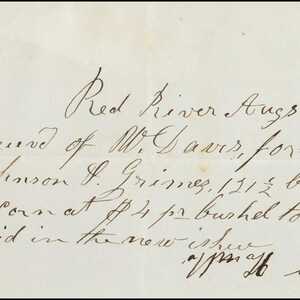 Red River Augs
eiv'd of Wm Davis, for
hnson & Grimes, 121½ b
corn at $4 pr bushel to
id in the new ishue